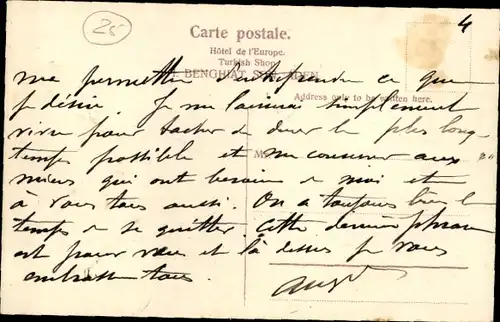 25
4
Carte postale.
Hôtel de l'Europe.
Turkish Shop
BENGHIAT ADEN.
Address only to be written here.
me permettra d'entreprendre ce que
je désire. Je me laisserai simplement
vivre pour tacher de durer le plus long-
temps possible et me conserver aux
miens qui ont besoin de moi et
à vous tous aussi. On a toujours bien le
temps de se quitter. Cette dernière phrase
est pour vous et là dessus je vous
embrasse tous.